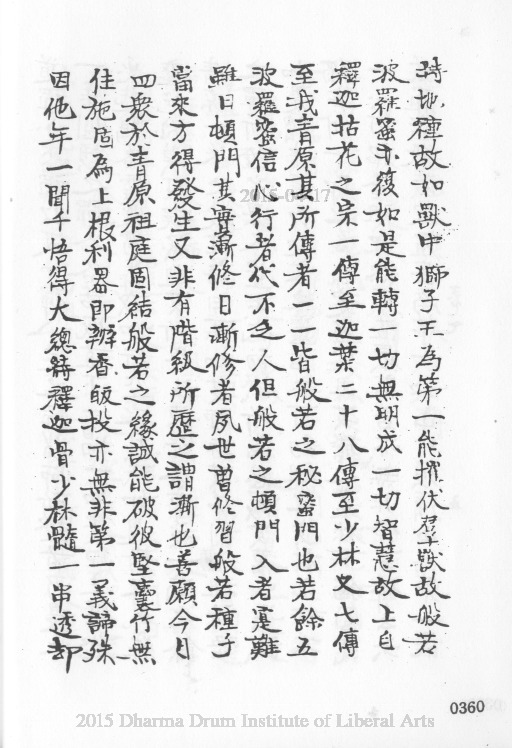 持地種故如獸中獅子王為第一能摧伏羣獸故般若
波羅蜜亦復如是能轉一切無明成一切智慧故上自
釋迦拈花之宗一傳至迦葉二十八傳至少林又七傳
至我青原其所傳者一一皆般若之秘密門也若餘五
波羅蜜信心行者代不乏人但般若之頓門入者寔難
雖曰頓門其實漸修曰漸修者夙世曾修習般若種子
當來方得發生又非有階級所歷之謂漸也善願今日
四衆於青原祖庭固結般若之緣誠能破彼堅囊竹無
住施固為上根利器即辦香皈投亦無非第一義諦殊
因他年一聞千悟得大總持釋迦骨少林髓一串透却
2015-04-17
0360
2015 Dharma Drum Institute of Liberal Arts